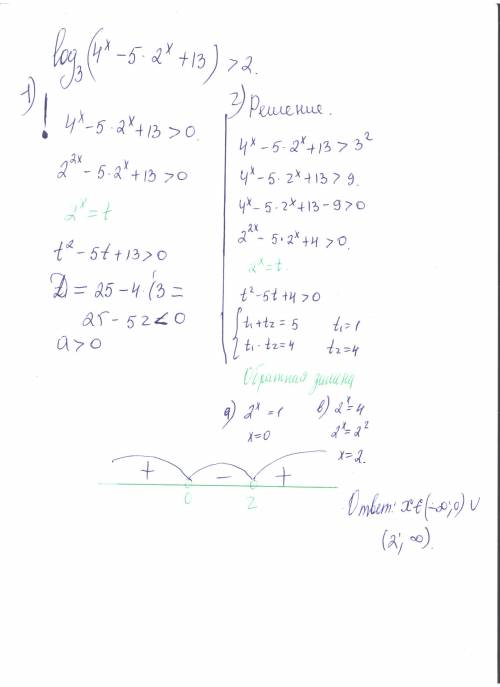 log₃(4ˣ − 5 · 2ˣ + 13) > 2.
1)
!
4ˣ − 5 · 2ˣ + 13 > 0.
2²ˣ − 5 · 2ˣ + 13 > 0
2ˣ = t
t² − 5t + 13 > 0
D = 25 − 4 · 13 =
25 − 52 < 0
a > 0
2) Решение.
4ˣ − 5 · 2ˣ + 13 > 3²
4ˣ − 5 · 2ˣ + 13 > 9.
4ˣ − 5 · 2ˣ + 13 − 9 > 0
2²ˣ − 5 · 2ˣ + 4 > 0.
2ˣ = t.
t² − 5t + 4 > 0
{ t₁ + t₂ = 5 t₁ = 1
t₁ · t₂ = 4 t₂ = 4
Обратная замена
а) 2ˣ = 1 в) 2ˣ = 4
x = 0 2ˣ = 2²
x = 2.
+ − +
0 2
Ответ: x ∈ (−∞; 0) ∪
(2; ∞).